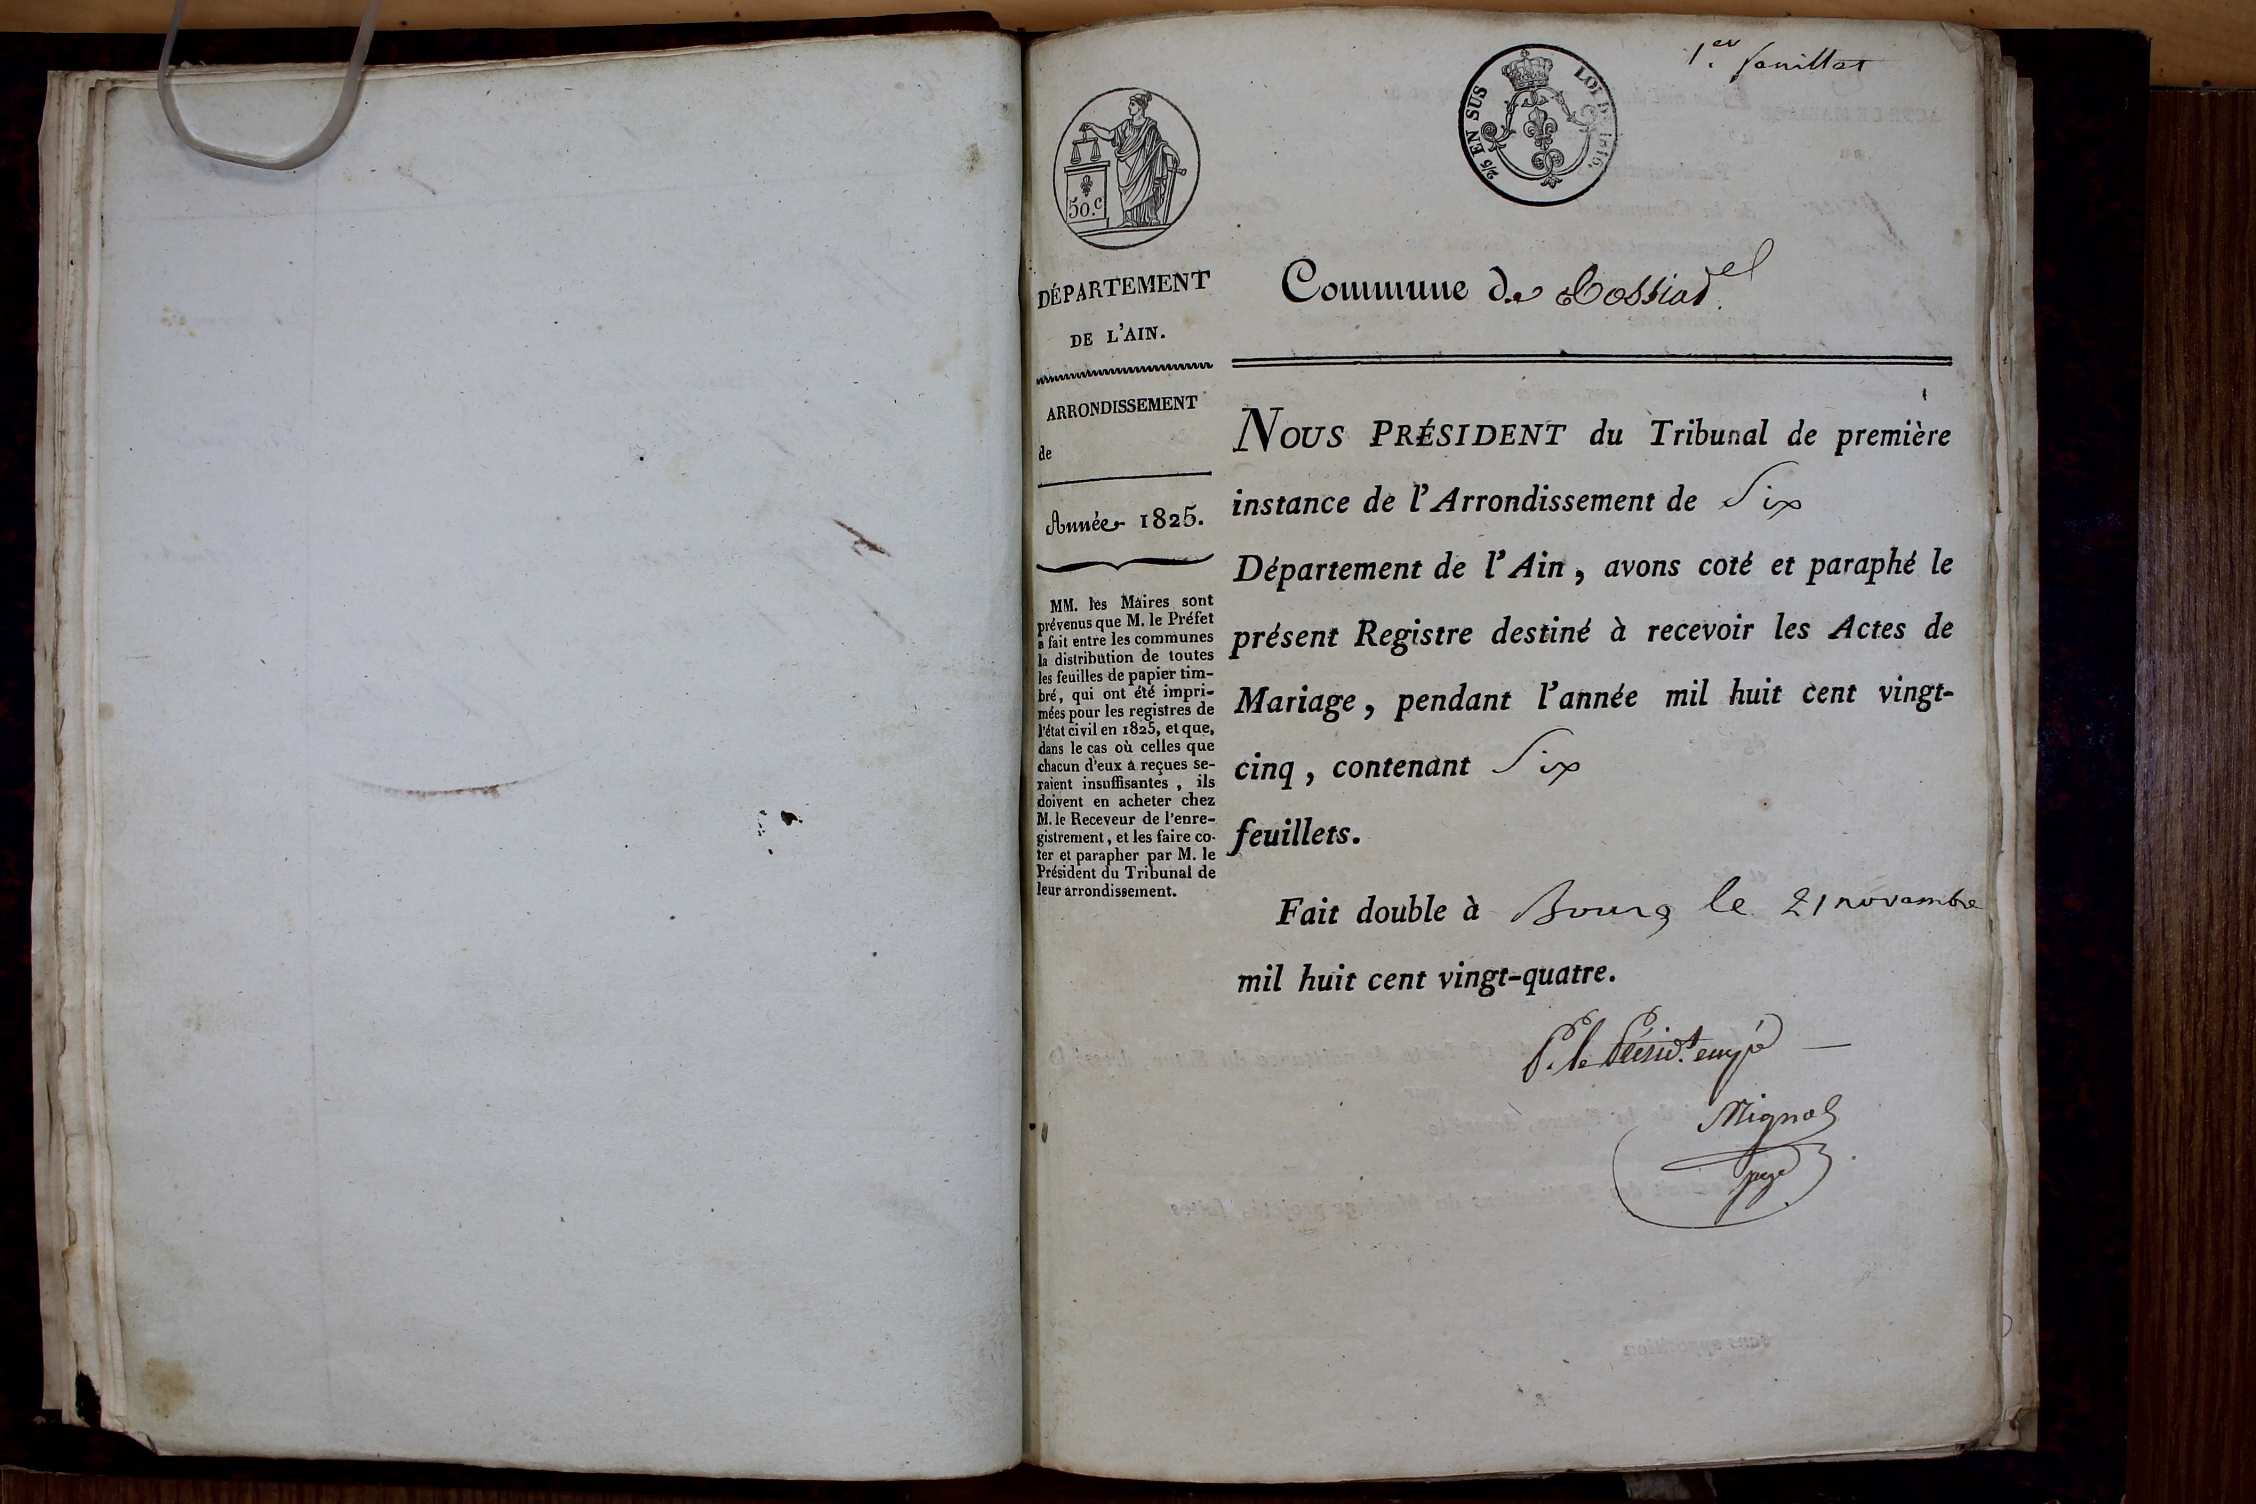 1.er feuillet
2/5 EN SUS
LOI DE 1816.
50.c
DÉPARTEMENT
DE L'AIN.
ARRONDISSEMENT
de
Année 1825.
MM. les Maires sont
prévenus que M. le Préfet
a fait entre les communes
la distribution de toutes
les feuilles de papier tim-
bré, qui ont été impri-
mées pour les registres de
l'état civil en 1825, et que,
dans le cas où celles que
chacun d'eux a reçues se-
raient insuffisantes, ils
doivent en acheter chez
M. le Receveur de l'enre-
gistrement, et les faire co-
ter et parapher par M. le
Président du Tribunal de
leur arrondissement.
Commune de Cossiat
NOUS PRÉSIDENT du Tribunal de première
instance de l'Arrondissement de Six
Département de l'Ain, avons coté et paraphé le
présent Registre destiné à recevoir les Actes de
Mariage, pendant l'année mil huit cent vingt-
cinq, contenant Six
feuillets.
Fait double à Bourg le 21 novembre
mil huit cent vingt-quatre.
P. le Présid.t
Mignot
juge